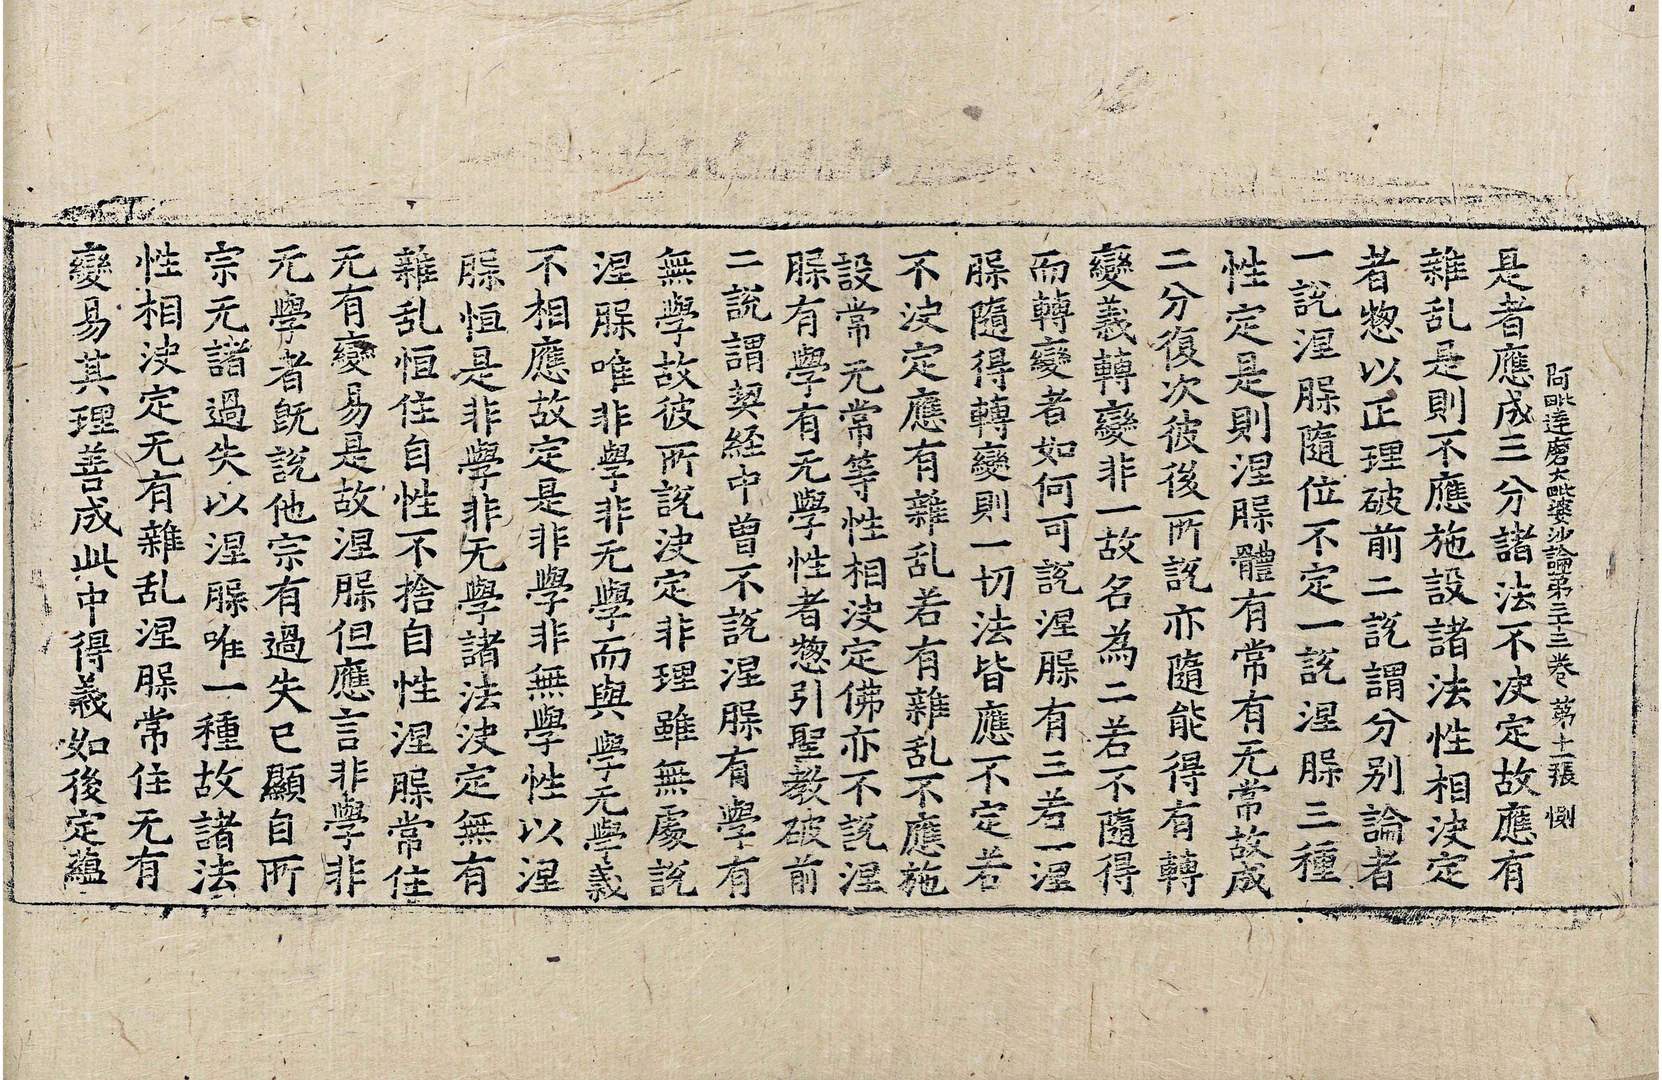 阿毗達磨大毗婆沙論第三十三卷 第十二張 惻
是者應成三分諸法不决定故應有
雜乱是則不應施設諸法性相决定
者惣以正理破前二說謂分别論者
一說涅槃隨位不定一說涅槃三種
性定是則涅槃體有常有无常故成
二分復次彼後所說亦隨能得有轉
變義轉變非一故名為二若不隨得
而轉變者如何可說涅槃有三若涅
槃隨得轉變則一切法皆應不定若
不决定應有雜乱若有雜乱不應施
設常无常等性相决定佛亦不說涅
槃有學有无學性者惣引聖教破前
二說謂契経中曾不說涅槃有學有
無學故彼所說决定非理雖無處說
涅槃唯非學非无學而與學无學義
不相應故定是非學非無學性以涅
槃恒是非學非无學諸法决定無有
雜乱恒住自性不捨自性涅槃常住
无有變易是故涅槃但應言非學非
无學者旣說他宗有過失已顯自所
宗无諸過失以涅槃唯一種故諸法
性相决定无有雜乱涅槃常住无有
變易其理善成此中得義如後定蘊